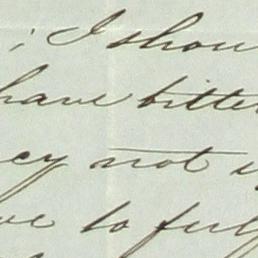 ; I shou
have bitte
ey not i
ve to ful